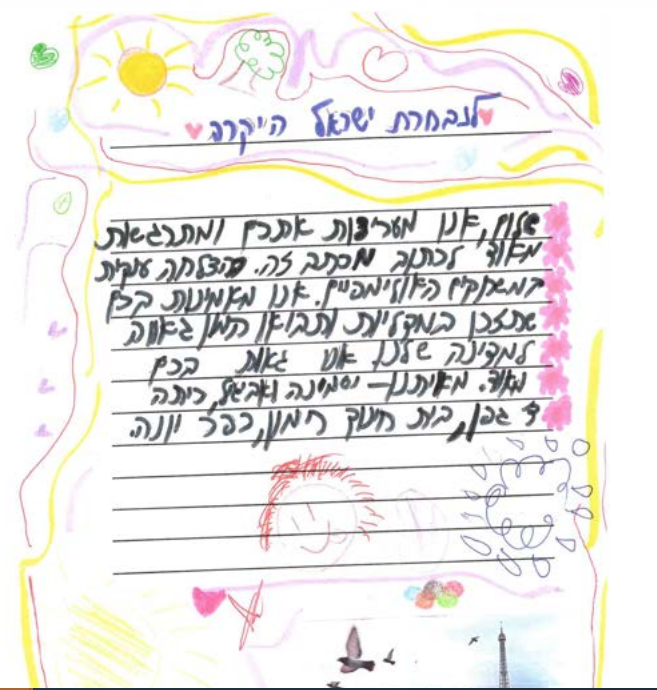 לנבחרת ישראל היקרה
שלום, אנו מעריצות אתכם ומתרגשות
מאוד לכתוב מכתב זה. בהצלחה ענקית
במשחקים האולימפיים. אנו מאמינות בכם
שתזכו במדליות ותביאו המון גאווה
למדינה שלנו. אנו גאות בכם
מאוד. מאיתנו - יסמינה ואביגל, כיתה
ד גפן, בית חינוך רימון, כפר יונה.